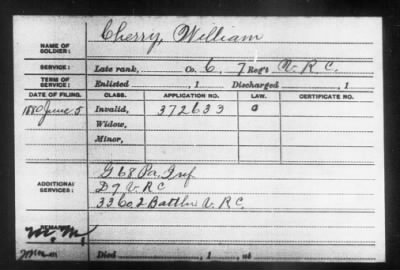 NAME OF SOLDIER: Cherry, William
SERVICE: Late rank, Co. C, 7 Reg't V. R. C.
TERM OF SERVICE: Enlisted , 1 Discharged , 1
DATE OF FILING. CLASS. APPLICATION NO. LAW. CERTIFICATE NO.
1880 June 5 Invalid, 372633
Widow,
Minor,
ADDITIONAL SERVICES: G 68 Pa. Inf
D 7 V. R. C
33 Co. 2 Battln V. R. C.
REMARKS:
Died , 1 , at